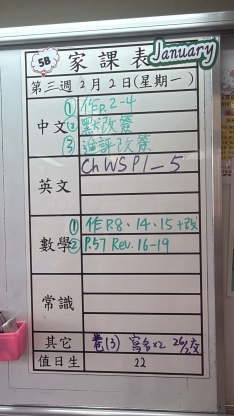 5B 家課表 January
第三週 2月2日(星期一)
中文
① 作p.2-4
② 默改簽
③ 論評改簽
英文
Ch WS P1_5
數學
① 作P.8、14、15+改
② P.57 Rev. 16-19
常識
其它 卷(3) 寫名x2 26/2交
值日生 22